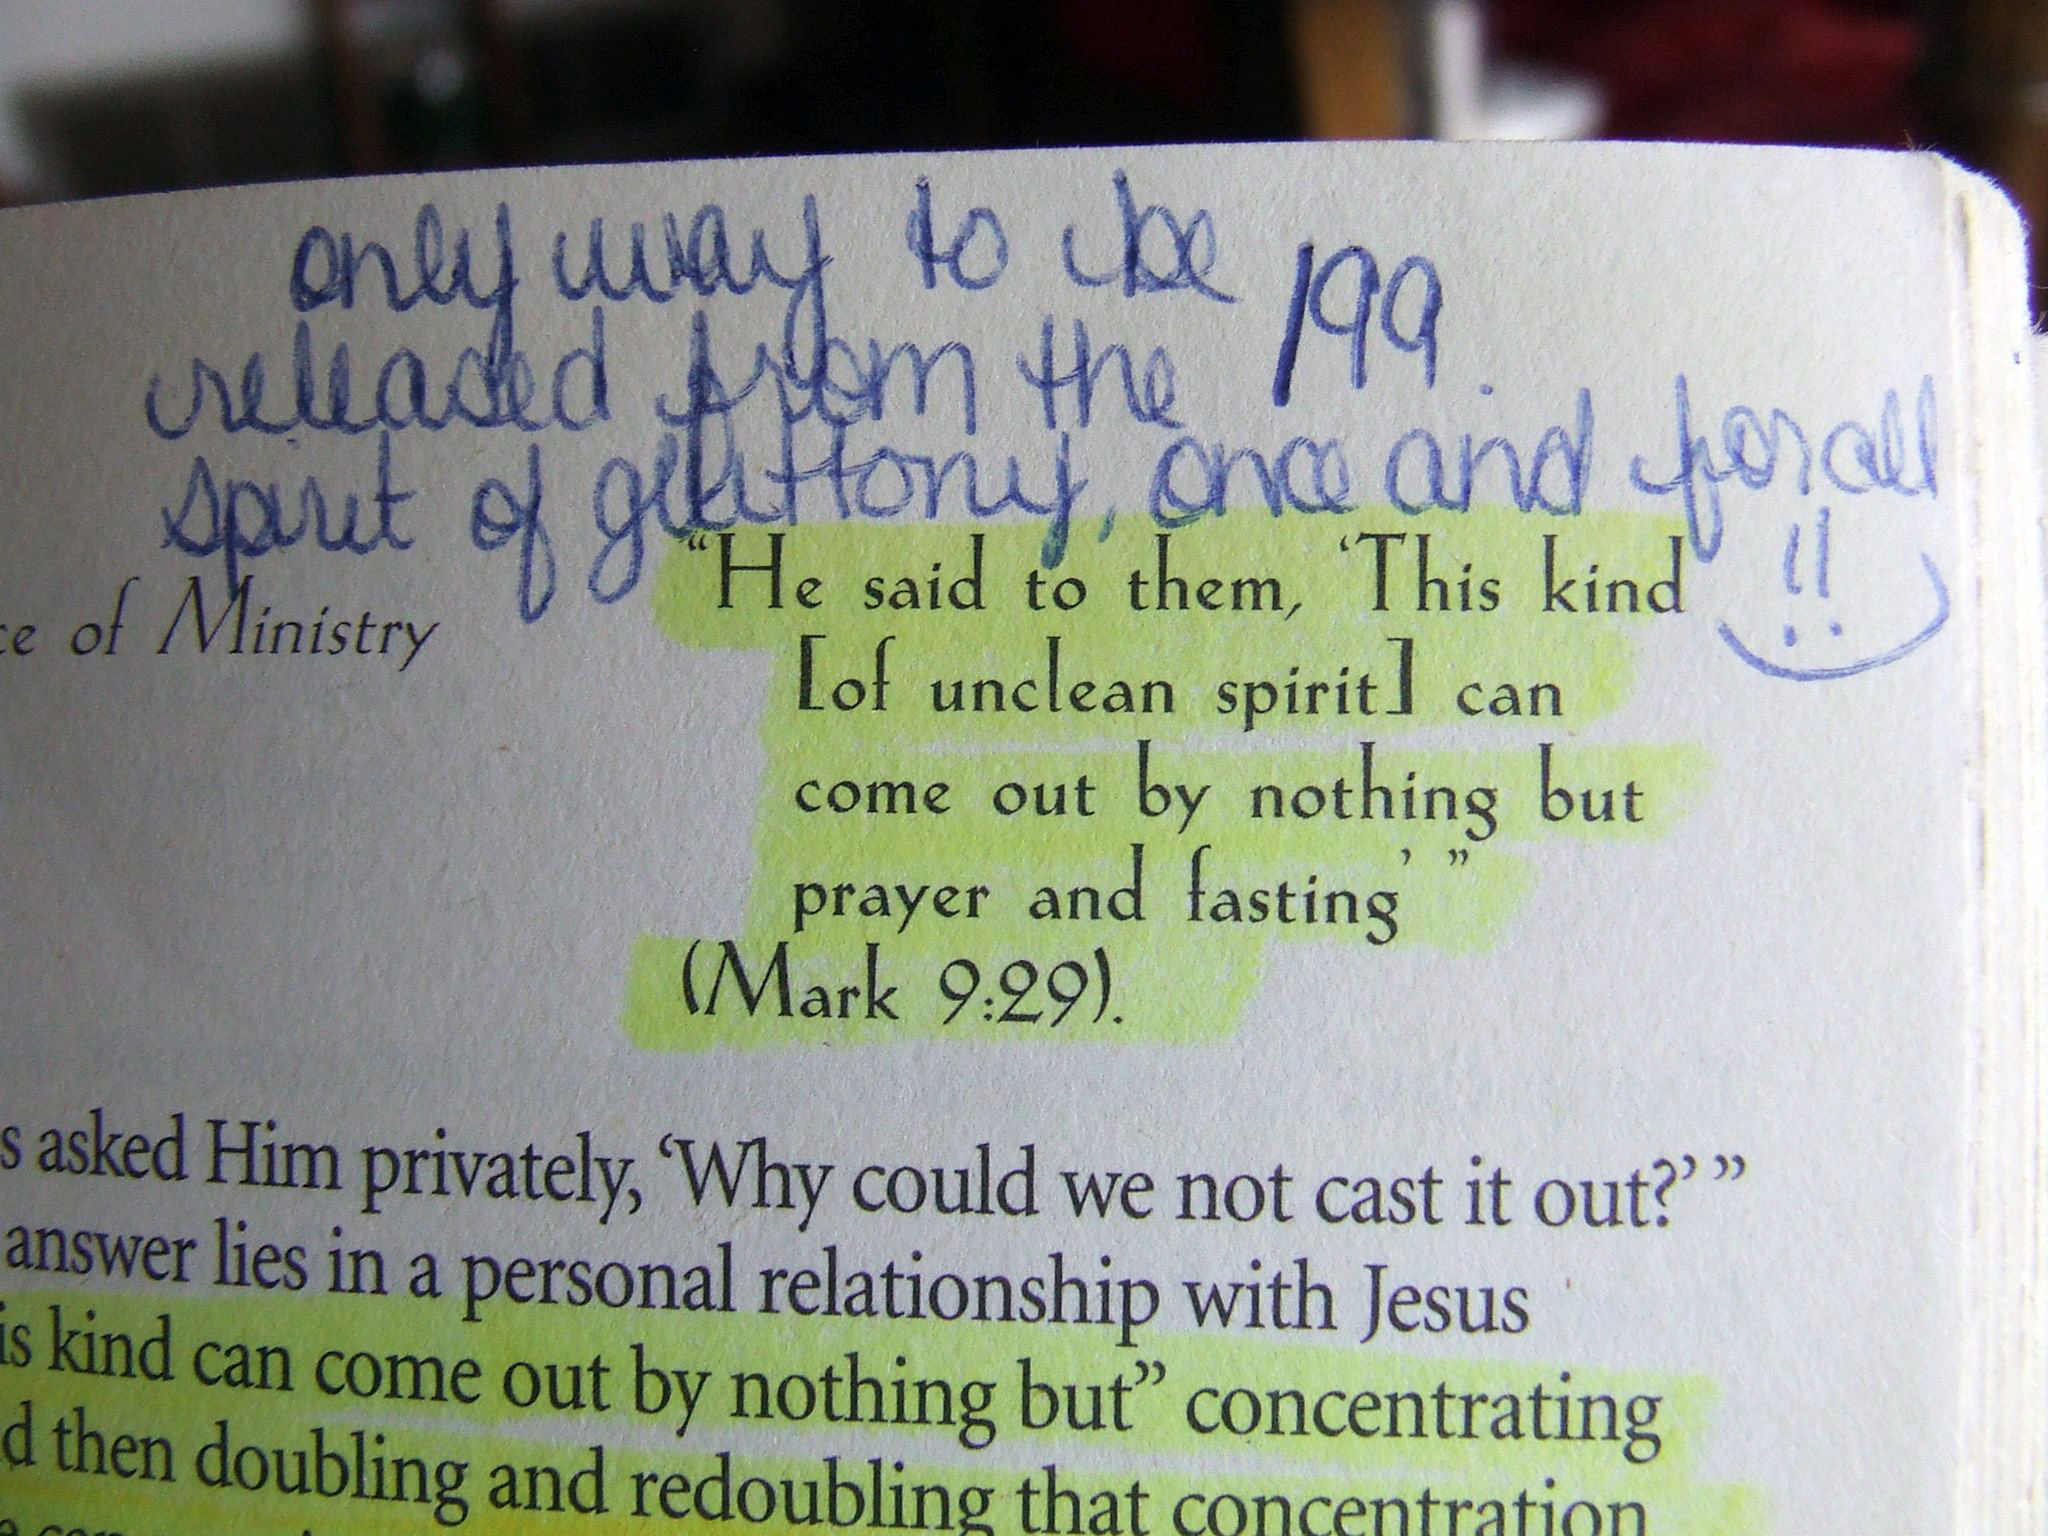 only way to be
199
released from the
spirit of gluttony, once and for all
!!
of Ministry
“He said to them, ‘This kind
[of unclean spirit] can
come out by nothing but
prayer and fasting’ ”
(Mark 9:29).
s asked Him privately, ‘Why could we not cast it out?’ ”
answer lies in a personal relationship with Jesus
is kind can come out by nothing but” concentrating
d then doubling and redoubling that concentration